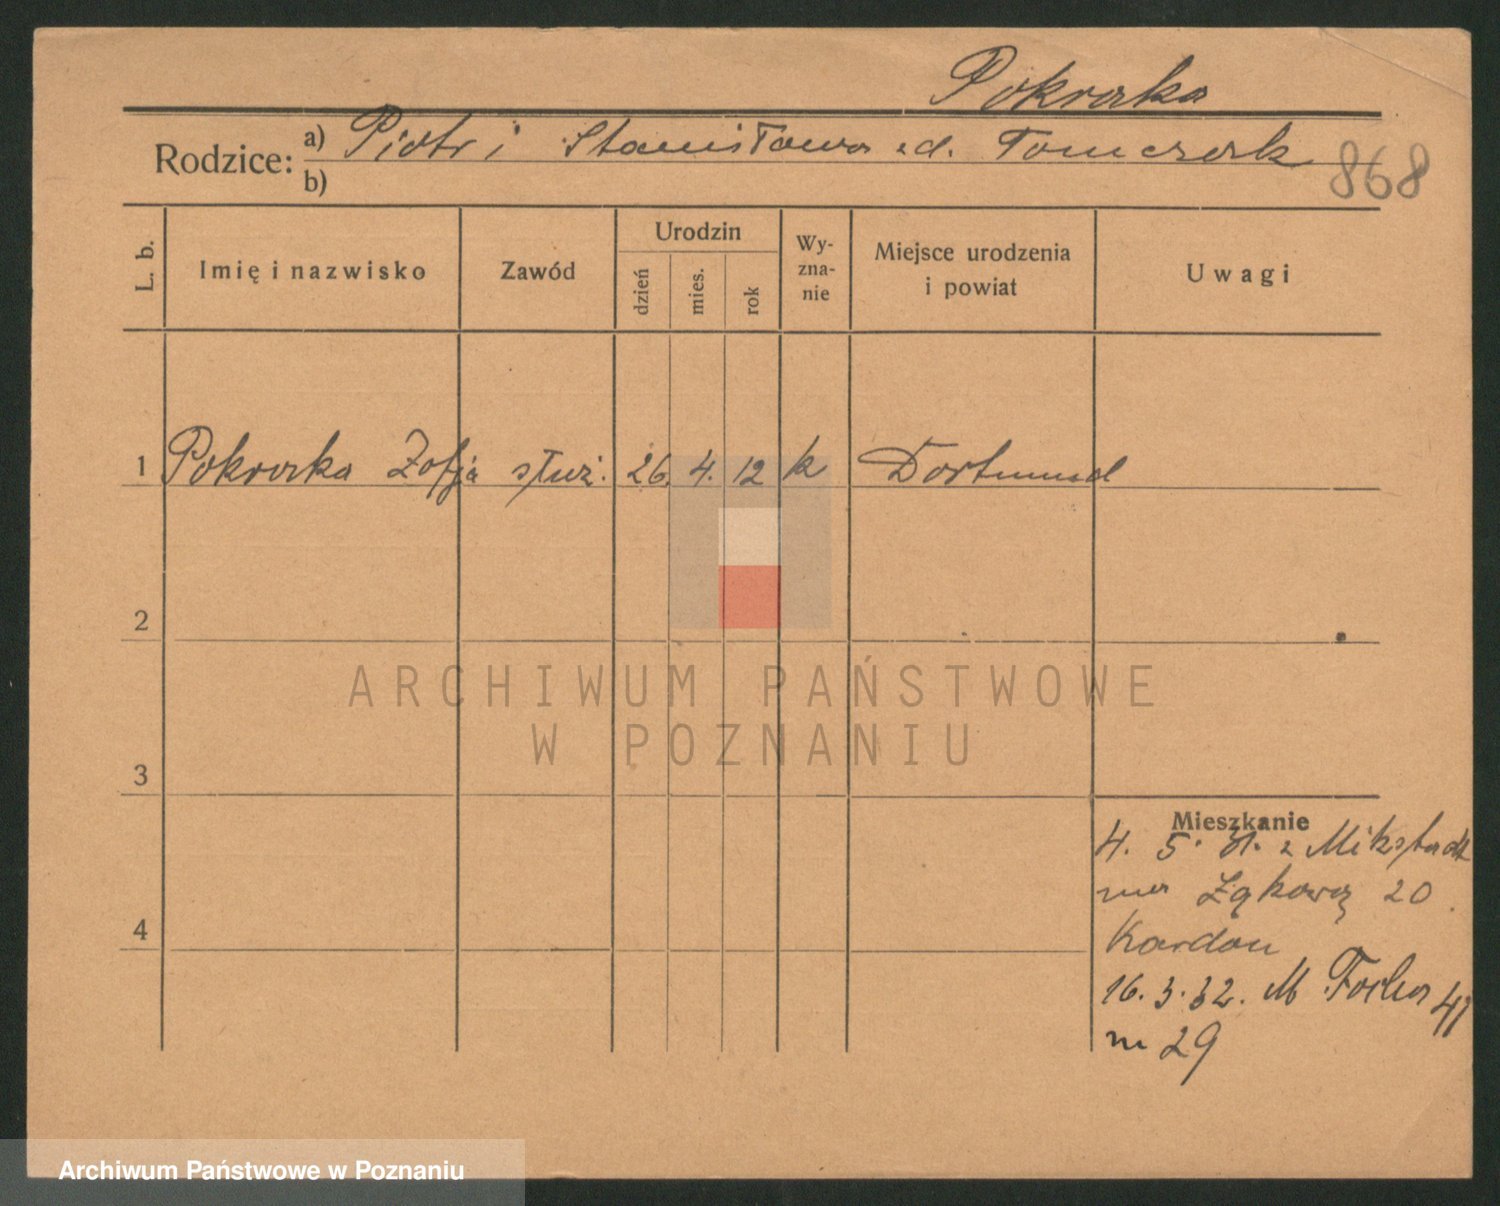 Pokrorka
Rodzice: a) Piotr i Stanisława zd. Tomczak
b)
868
L. b.
Imię i nazwisko
Zawód
Urodzin
dzień
mies.
rok
Wy-
zna-
nie
Miejsce urodzenia
i powiat
Uwagi
1 Pokrorka Zofja służ. 26. 4. 12 k Dortmund
2
3
4
Mieszkanie
4. 5. 31. z Mikstadt
na Łąkową 20
16. 3. 32. M Focha 41
m 29
ARCHIWUM PAŃSTWOWE
W POZNANIU
Archiwum Państwowe w Poznaniu